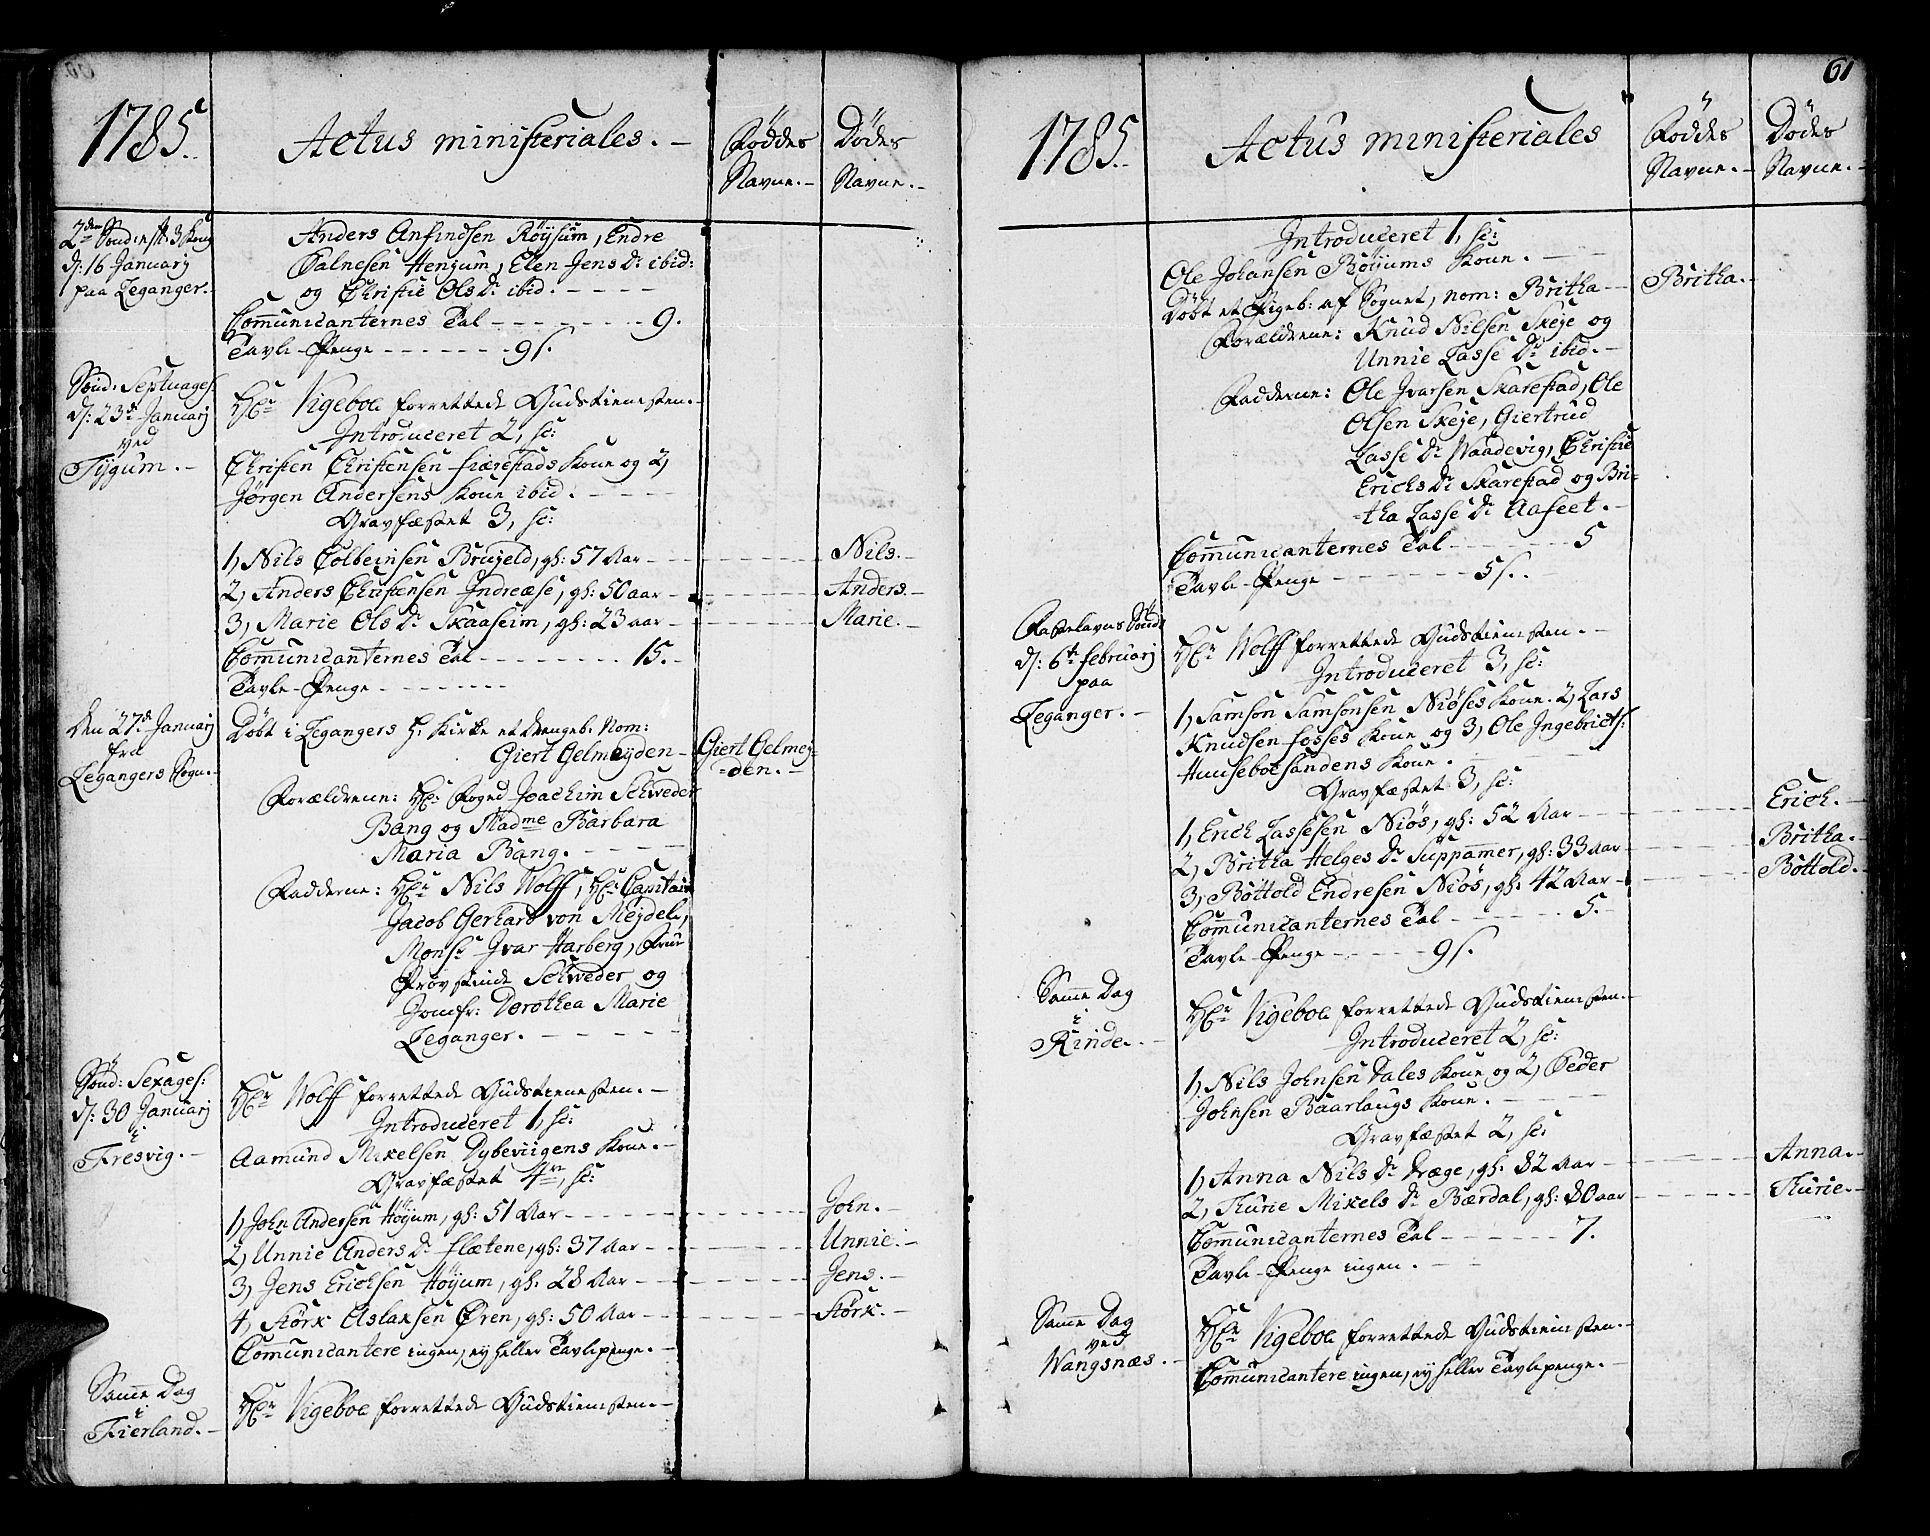 1785.
Actus ministeriales.
Föddes Navne.
Dödes Navne.
2den Sönd: p: 3 Kong
d: 16 Januarj
paa Leganger.
Anders Ansindsen Röysum, Endre
Salnesen Henjum, Elen Jens Dr ibid:
og Christie Ols Dr ibid.
Comunicanternes Tal 9.
Tavle-Penge 9 s.
Sönd: Septuages:
d: 23de Januarj
ved
Tygum.
Hr Vigeboe forrettede Gudstienesten.
Introduceret 2, sc:
Christen Christensen Fiærestads Kone og 2,
Jörgen Andersens Kone ibid.
Gravfæstet 3, sc:
1, Nils Colbeinsen Brujeld, gl: 57 Aar Nils.
2, Anders Christensen Indreæse, gl: 50 aar Anders.
3, Marie Ols Dr Skaaseim, gl: 23 aar Marie.
Comunicanternes Tal 15.
Tavle-Penge
Den 27de Januarj
fra
Legangers Sogn.
Döbt i Legangers H. Kirke et drengeb: Nom:
Giert Gelmeyden Giert Gelmey=
=den.
Forældrene: Hr Foged Joachim Schweder
Bang og Madme Barbara
Maria Bang.
Fadderne: Hr Nils Wolff, Hr Capitain
Jacob Gerhard von Meydel,
Monsr Jvar Harberg, Frue
Provstinde Schweder og
Jomfr: Dorothea Marie
Leganger.
Sönd: Sexages:
d: 30 Januarj
i
Fresvig.
Hr Wolff forrettede Gudstienesten.
Introduceret 1, sc:
Aamund Mikelsen Dybeviigens Kone.
Gravfæstet 4re, sc:
1, John Andersen Höyum, gl: 51 Aar John.
2, Unnie Anders Dr Flætene, gl: 37 Aar Unnie.
3, Jens Erichsen Höyum, gl: 28 Aar Jens.
4, Störk Aslaksen Ören, gl: 50 Aar Störk.
Comunicantere ingen, ey heller Tavlepenge.
Same Dag
i
Fierland.
Hr Vigeboe forrettede Gudstienesten.
61
1785.
Actus ministeriales
Föddes Navne.
Dödes Navne.
Introduceret 1, sc:
Ole Johansen Röyums Kone.
Döbt et Pigeb: af Sognet, nom: Britha Britha.
Forældrene: Knud Nilsen Skeje og
Unnie Lasse Dr ibid.
Fadderne: Ole Jvarsen Skarestad, Ole
Olsen Skeje, Giertrud
Lasse Dr Waadevig, Christie
Erichs Dr Skarestad og Bri=
=tha Lasse Dr Aaseet.
Comunicanternes Tal 5
Tavle-Penge 5 s.
Fastelavns Sönd:
d: 6te Februarj
paa
Leganger.
Hr Wolff forrettede Gudstienesten.
Introduceret 3, sc:
1, Samson Samsonsen Niöses Kone. 2, Lars
Knudsen Fosses Kone og 3, Ole Ingebrictsː
Hunseboesandens Kone.
Gravfæstet 3, sc:
1, Erich Lassesen Niös, gl: 52 Aar Erich.
2, Britha Helges Dr Suppamer, gl: 33 Aar Britha.
3, Böttold Endresen Niös, gl: 42 Aar Böttold.
Comunicanternes Tal 5.
Tavle-Penge 9 s.
Same Dag
i
Rinde.
Hr Vigeboe forrettede Gudstienesten.
Introduceret 2, sc:
1, Nils Johnsen Dales Kone og 2, Peder
Johnsen Baarlaugs Kone.
Gravfæstet 2, sc:
1, Anna Nils Dr Dræge, gl: 82 Aar Anna.
2, Thurie Mikels Dr Bærdal, gl: 80 aar Thurie.
Comunicanternes Tal 7.
Tavle-Penge ingen.
Same Dag
ved
Wangsnæs.
Hr Vigeboe forrettede Gudstienesten.
Comunicantere ingen, ey heller Tavlepenge.